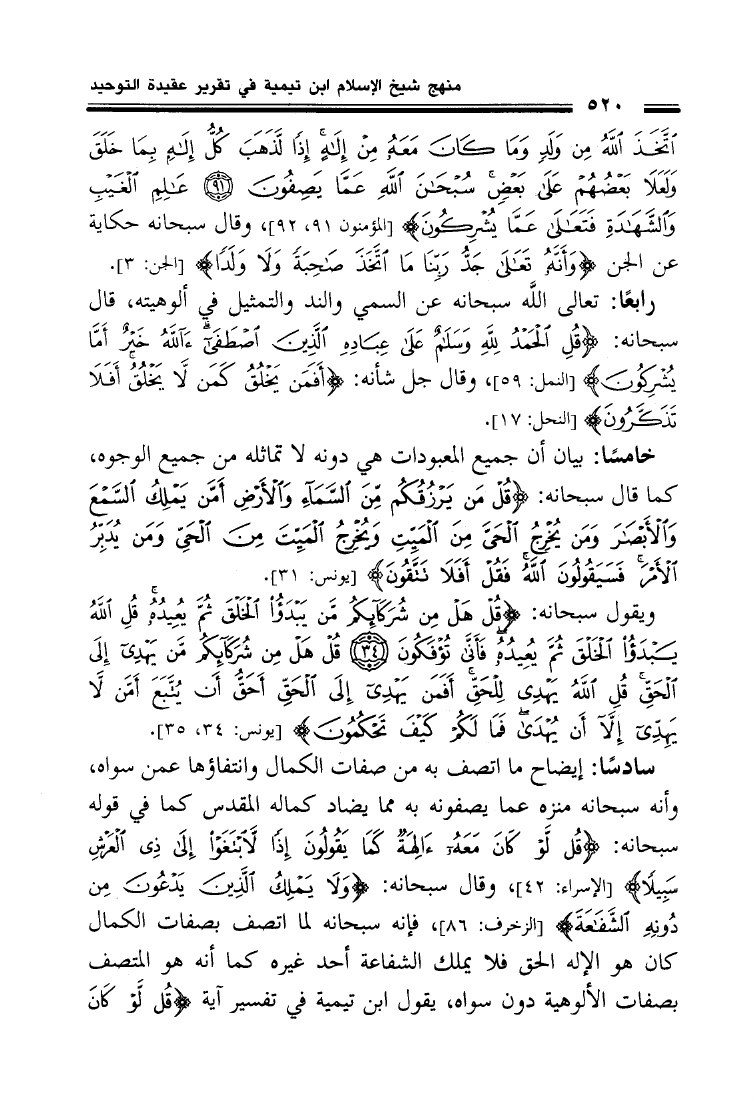 منهج شيخ الإسلام ابن تيمية في تقرير عقيدة التوحيد
٥٢٠
ٱتَّخَذَ ٱللَّهُ مِن وَلَدٍ وَمَا كَانَ مَعَهُۥ مِنْ إِلَٰهٍ ۚ إِذًا لَّذَهَبَ كُلُّ إِلَٰهٍۭ بِمَا خَلَقَ
وَلَعَلَا بَعْضُهُمْ عَلَىٰ بَعْضٍ ۚ سُبْحَٰنَ ٱللَّهِ عَمَّا يَصِفُونَ ۝٩١ عَٰلِمِ ٱلْغَيْبِ
وَٱلشَّهَٰدَةِ فَتَعَٰلَىٰ عَمَّا يُشْرِكُونَ﴾ [المؤمنون ٩١، ٩٢]، وقال سبحانه حكاية
عن الجن ﴿وَأَنَّهُۥ تَعَٰلَىٰ جَدُّ رَبِّنَا مَا ٱتَّخَذَ صَٰحِبَةً وَلَا وَلَدًا﴾ [الجن: ٣].
رابعًا: تعالى اللَّه سبحانه عن السمي والند والتمثيل في ألوهيته، قال
سبحانه: ﴿قُلِ ٱلْحَمْدُ لِلَّهِ وَسَلَٰمٌ عَلَىٰ عِبَادِهِ ٱلَّذِينَ ٱصْطَفَىٰٓ ۗ ءَآللَّهُ خَيْرٌ أَمَّا
يُشْرِكُونَ﴾ [النمل: ٥٩]، وقال جل شأنه: ﴿أَفَمَن يَخْلُقُ كَمَن لَّا يَخْلُقُ ۗ أَفَلَا
تَذَكَّرُونَ﴾ [النحل: ١٧].
خامسًا: بيان أن جميع المعبودات هي دونه لا تماثله من جميع الوجوه،
كما قال سبحانه: ﴿قُلْ مَن يَرْزُقُكُم مِّنَ ٱلسَّمَآءِ وَٱلْأَرْضِ أَمَّن يَمْلِكُ ٱلسَّمْعَ
وَٱلْأَبْصَٰرَ وَمَن يُخْرِجُ ٱلْحَىَّ مِنَ ٱلْمَيِّتِ وَيُخْرِجُ ٱلْمَيِّتَ مِنَ ٱلْحَىِّ وَمَن يُدَبِّرُ
ٱلْأَمْرَ ۚ فَسَيَقُولُونَ ٱللَّهُ ۚ فَقُلْ أَفَلَا تَتَّقُونَ﴾ [يونس: ٣١].
ويقول سبحانه: ﴿قُلْ هَلْ مِن شُرَكَآئِكُم مَّن يَبْدَؤُا۟ ٱلْخَلْقَ ثُمَّ يُعِيدُهُۥ ۚ قُلِ ٱللَّهُ
يَبْدَؤُا۟ ٱلْخَلْقَ ثُمَّ يُعِيدُهُۥ ۖ فَأَنَّىٰ تُؤْفَكُونَ ۝٣٤ قُلْ هَلْ مِن شُرَكَآئِكُم مَّن يَهْدِىٓ إِلَى
ٱلْحَقِّ ۚ قُلِ ٱللَّهُ يَهْدِى لِلْحَقِّ ۗ أَفَمَن يَهْدِىٓ إِلَى ٱلْحَقِّ أَحَقُّ أَن يُتَّبَعَ أَمَّن لَّا
يَهِدِّىٓ إِلَّآ أَن يُهْدَىٰ ۖ فَمَا لَكُمْ كَيْفَ تَحْكُمُونَ﴾ [يونس: ٣٤، ٣٥].
سادسًا: إيضاح ما اتصف به من صفات الكمال وانتفاؤها عمن سواه،
وأنه سبحانه منزه عما يصفونه به مما يضاد كماله المقدس كما في قوله
سبحانه: ﴿قُل لَّوْ كَانَ مَعَهُۥٓ ءَالِهَةٌ كَمَا يَقُولُونَ إِذًا لَّٱبْتَغَوْا۟ إِلَىٰ ذِى ٱلْعَرْشِ
سَبِيلًا﴾ [الإسراء: ٤٢]، وقال سبحانه: ﴿وَلَا يَمْلِكُ ٱلَّذِينَ يَدْعُونَ مِن
دُونِهِ ٱلشَّفَٰعَةَ﴾ [الزخرف: ٨٦]، فإنه سبحانه لما اتصف بصفات الكمال
كان هو الإله الحق فلا يملك الشفاعة أحد غيره كما أنه هو المتصف
بصفات الألوهية دون سواه، يقول ابن تيمية في تفسير آية ﴿قُل لَّوْ كَانَ